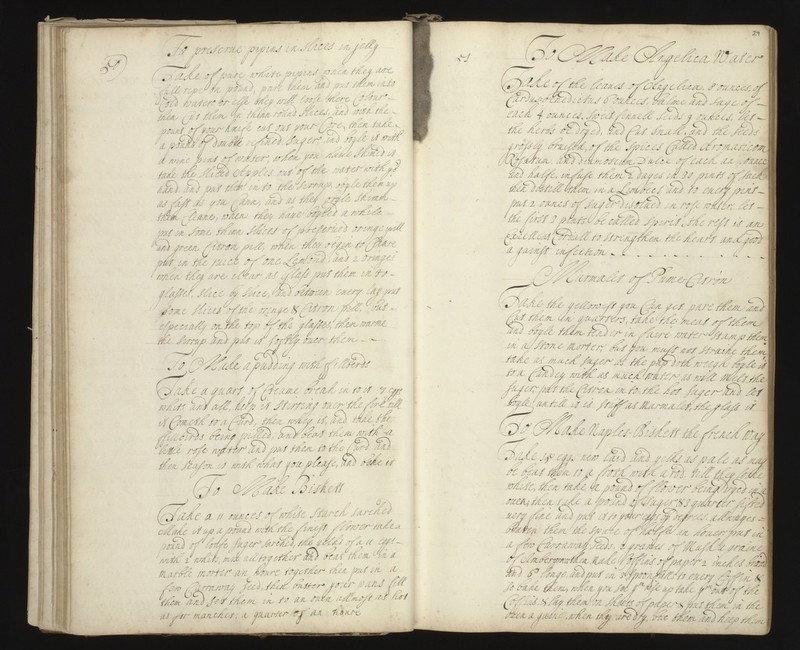 To preserue pipins in slices in jelly
Take of pure white pipins when they are
full ripe a pound, pare them and put them into
cold water or else they will loose there colour
then Cut them in thinn round slices, and with the
point of your knife cut out your Core, then take
a pound of double refined Suger and boyle it with
a wine pint of water, when you haue skimed it
take the sliced Apples out of the water with yr
hand and put them in to the sirrop, boyle them up
as fast as you Cann, and as they boyle skimm
them Cleane, when they haue boyled a while
put in some thinn slices of preserued oringe pill
and green Citron pill, when they begin to Cleare
put in the juice of one Lemond and 2 oringes
when they are cleare as Glass put them into
glasses, slice by slice, and between euery lay put
some slices of the oringe & Citron pill, but
especially on the top of the glasses, then warme
the sirrop and put it softly ouer them
To Make a pudding with filberds
Take a quart of Creame break in to it 7 eggs
white and all, keep it stirring ouer the fire till
it Cometh to a Curd, then whey it, and take the
filberds being pilled, and beat them with a
little rose water and put them to the Curd and
then season it with what you please, and bake it
To Make Biskett
Take a 11 ounces of white starch sarched
Make it up a pound with the finest flower take a
pound of loafe suger sarched, the yolks of 4 11 eggs
with 2 whites, mix all together and beat them in a
marble mortar an houre together then put in a
few Carraway seed, then butter your pans fill
them and set them in to an ouen allmost as hot
as for manchet: a quarter of an houre
51
To Make Angelica Water
Take of the leaues of Angelica 8 ounces of
Carduus benedictus 6 ounces, balme and sage of
each 4 ounces, sweet fennell seeds 3 ounces, let
the herbs be dryed, and cut small, and the seeds
grossly bruised, of the Spices Called Aromaticum
Rosatum and diamoscum Dulce of each an ounce
and halfe, infuse them 2 dayes in 30 pints of sack
then distill them in a Lymbeck and to euery pint
put 2 ounces of suger disolued in rose water let
the first 3 pints be called spirit, the rest is an
excellent Cordiall to strengthen the heart and good
against infection
Marmalet of Pome Citron
Take the yellowest you Can get pare them and
Cut them in quarters, take the meat of them
and boyle them tender in faire water stamp them
in a stone morter but you must not straine them
take as much suger as the pap doth weigh boyle it
to a Candey with as much water as will melt the
suger, put the Citron in to the hot suger and let
boyle untill it is stiff as marmalet, the glass it
To Make Naples Biskett the french Way
Take 18 eggs new laid and yolks as pale as may
be beat them to a froth with a rod till they looke
white, then take a pound of flower being dryed in a
ouen, then take a pound of suger & 3 quarters sifted
uery fine and put it to your eggs by degrees &
beaten them the space of halfe an houer put in
a few Carraway seeds, 2 graines of Musk & graine
of Ambergris then make Coffins of paper 2 inches broad
and 5 longe and put in a spoonfull to euery Coffin &
so bake them, when you see ym rise up take ym out of the
Coffins & lay them on sheets of paper & put them in the
ouen againe, when they are dry, box them and keep them